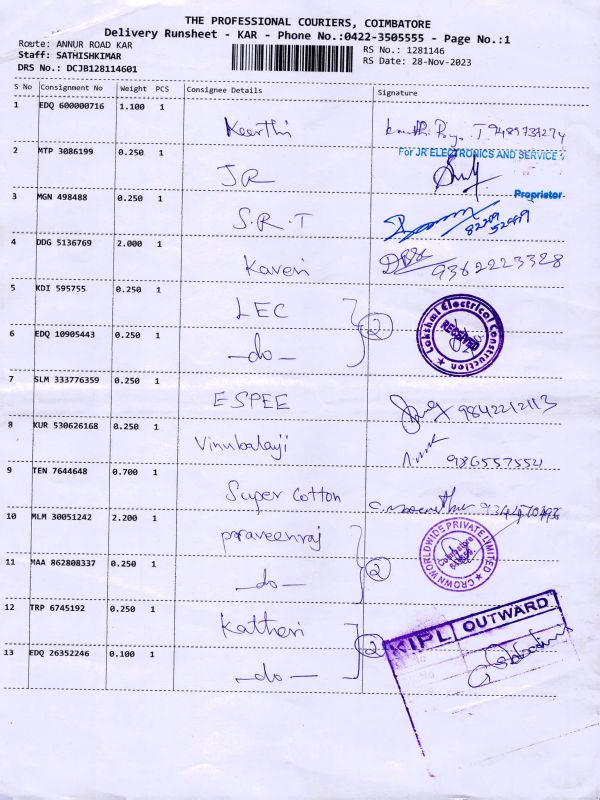 THE PROFESSIONAL COURIERS, COIMBATORE
Delivery Runsheet - KAR - Phone No.:0422-3505555 - Page No.:1
Route: ANNUR ROAD KAR
RS No.: 1281146
Staff: SATHISHKIMAR
RS Date: 28-Nov-2023
DRS No.: DCJB128114601
S No Consignment No Weight PCS Consignee Details Signature
1 EDQ 600000716 1.100 1 Keerthi
For JR ELECTRONICS AND SERVICE
2 MTP 3086199 0.250 1 JR
Proprietor
3 MGN 498488 0.250 1 S.R.T 82209
4 DDG 5136769 2.000 1 Kaveri 9362223328
5 KDI 595755 0.250 1 LEC 2 Lakshmi Electrical Construction RECEIVED
6 EDQ 10905443 0.250 1 -do-
7 SLM 333776359 0.250 1 ESPEE 9842212113
8 KUR 530626168 0.250 1 Vinubalaji 986557554
9 TEN 7644648 0.700 1 Super Cotton
10 MLM 30051242 2.200 1 praveenraj 2 CROWN WORLDWIDE PRIVATE LIMITED Coimbatore
11 MAA 862808337 0.250 1 -do-
12 TRP 6745192 0.250 1 Katheri 2 KIPL OUTWARD
13 EDQ 26352246 0.100 1 -do-